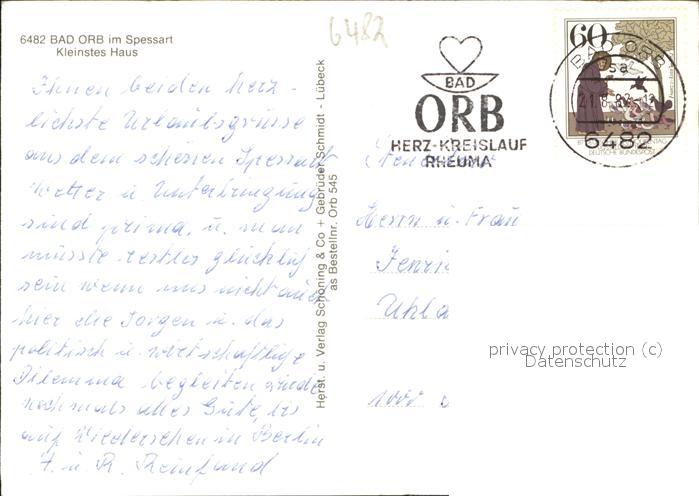 6482 BAD ORB im Spessart
Kleinstes Haus
6482
Ihnen beiden herz-
lichste Urlaubsgrüsse
aus dem schönen Spessart
Wetter u. Unterbringung
sind prima, u. man
müsste restlos glücklich
sein wenn uns nicht auch
hier die Sorgen u. das
politisch u. wirtschaftlige
Dilemma begleiten würde
nochmals alles Gute, bis
auf Wiedersehen in Berlin
Herst. u. Verlag Schöning & Co + Gebrüder Schmidt - Lübeck
as Bestellnr. Orb 545
BAD
ORB
HERZ-KREISLAUF
RHEUMA
60
BAD ORB
6482
DEUTSCHE BUNDESPOST
Herrn u. Frau
Uhla
1000
privacy protection (c)
Datenschutz